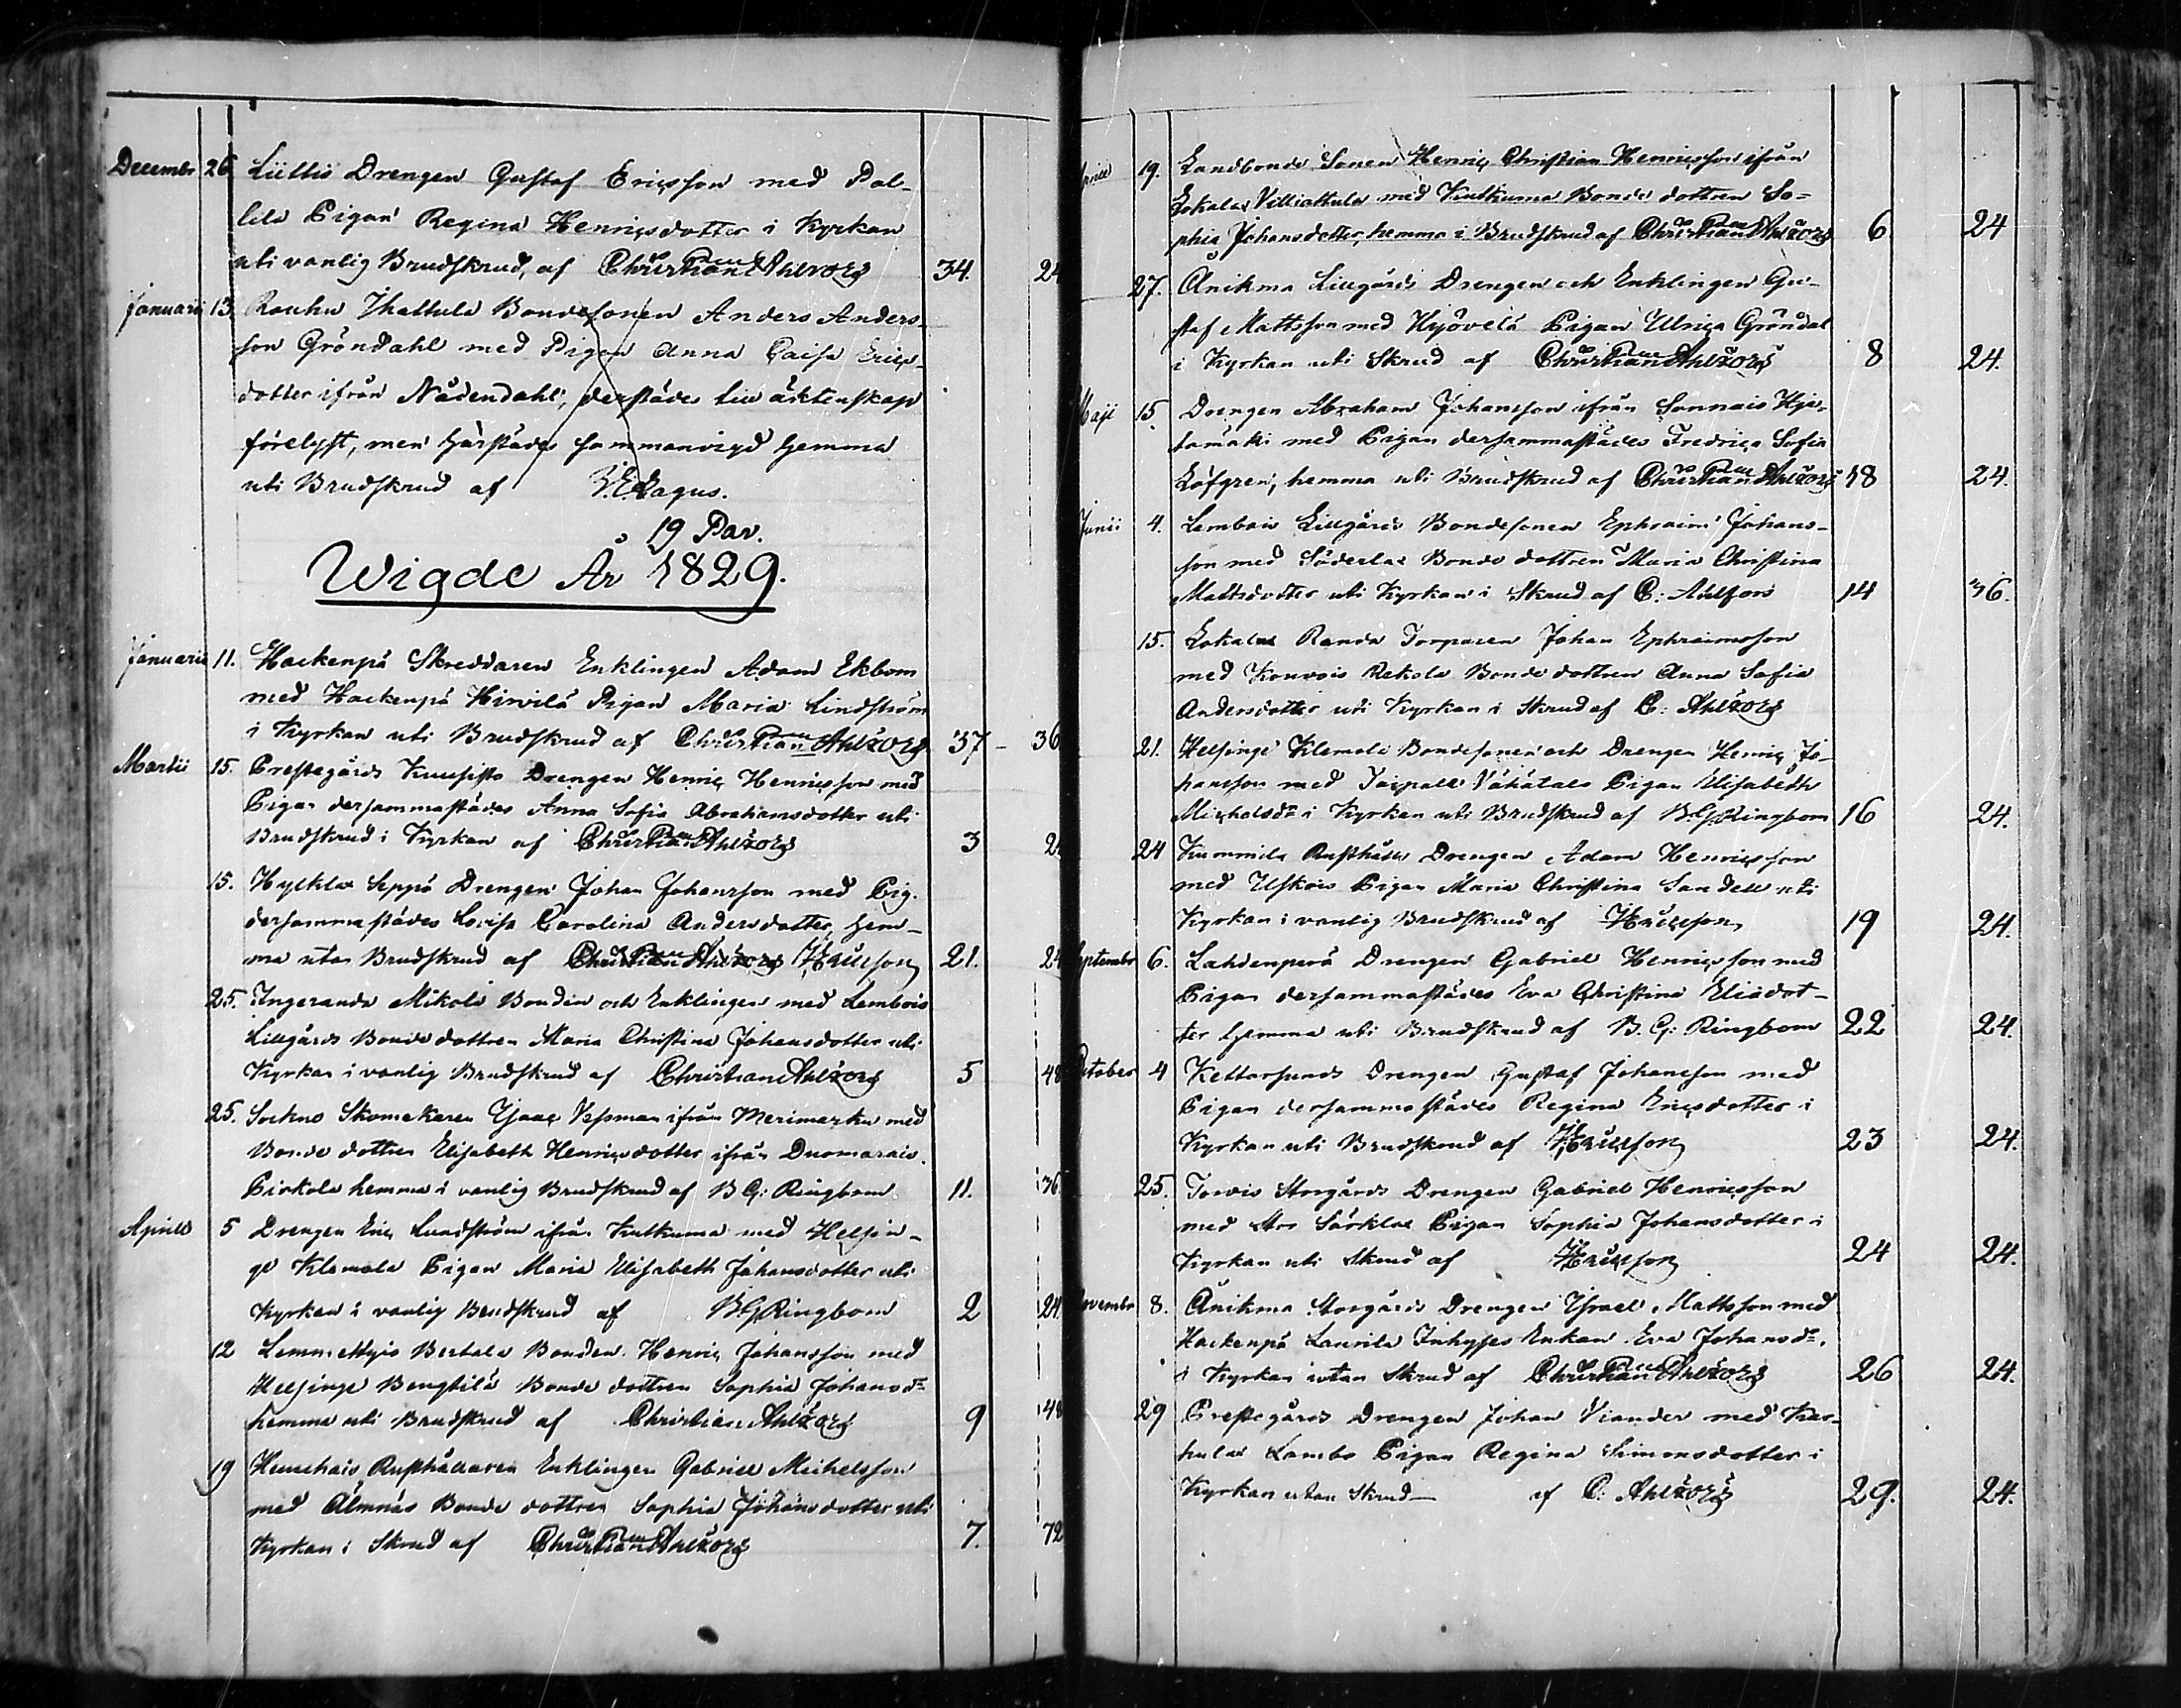 Decembr 26 Lietlis Drengen Gustaf Ericsson med Pal-
lila Pigan Regina Henricsdotter i Kyrkan
uti vanlig Brudskrud, af Christian Ahlfors 34. 24
Januarii 13. Rauhu Ihattula Bondesonen Anders Anders-
son Gröndahl med Pigan Anna Caisa Erics-
dotter ifrån Nådendahl, derstädes till äktenskap
förelyst, men härstädes sammanvigd hemma
uti Brudskrud af
19 Par.
Wigde År 1829.
Januarii 11. Hackenpä Skreddaren Enklingen Adam Ekbom
med Hackenpä Hirvilä Pigan Maria Lindström
i Kyrkan uti Brudskrud af Christian Ahlfors 37 - 36
Martii 15. Prestegårds Drengen Henric Henricsson med
Pigan dersammastädes Anna Sofia Abrahamsdotter uti
Brudskrud i Kyrkan af Christian Ahlfors 3 24
15. Hylkilax Seppä Drengen Johan Johansson med Pig.
dersammastädes Lovisa Carolina Andersdotter, hem-
ma utan Brudskrud af Christian Ahlfors 21. 24
25. Ingeranda Mikola Bonden och Enklingen med Lembois
Lillgårds Bonde dottren Maria Christina Johansdotter uti
Kyrkan i vanlig Brudskrud af Christian Ahlfors 5 48
25. Sockne Skomakaren Isaac Vesman ifrån Merimasku med
Bonde dottren Elisabeth Henricsdotter ifrån Duomarais
Pirkola hemma i vanlig Brudskrud af B G: Ringbom 11. 36
Aprill 5 Drengen Eric Lundström ifrån Kutkuma med Helsin-
ge Klemola Pigan Maria Elisabeth Johansdotter uti
Kyrkan i vanlig Brudskrud af B. G Ringbom 2 24.
12 Lemmettyis Bertala Bonden Henric Johansson med
Helsinge Bengtilä Bonde dottren Sophia Johansdr
hemma uti Brudskrud af Christian Ahlfors 9 48
19 Rusthållaren Enklingen Gabriel Michelsson
med Älmnäs Bonde dottren Sophia Johansdotter uti
Kyrkan i Skrud af Christian Ahlfors 7. 72
19. Landbonde Sonen Henric Christian Henricsson ifrån
Lokalax Villiattula med Kutkuma Bonde dottren So-
phia Johansdotter, hemma i Brudskrud af Christian Ahlfors 6 24
27. Anikma Lillgårds Drengen och Enklingen Gu-
staf Mattsson med Hyövelä Pigan Ulrica Gröndal
i Kyrkan uti Skrud af Christian Ahlfors 8 24.
Maji 15. Drengen Abraham Johansson ifrån Sonnais Hjer-
tamäki med Pigan dersammastädes Fredrica Sofia
Löfgren, hemma uti Brudskrud af Christian Ahlfors 18 24.
Junii 4. Lembois Lillgårds Bondesonen Ephraim Johans-
son med Söderlax Bonde dottren Maria Christina
Mattsdotter uti Kyrkan i Skrud af C: Ahlfors 14 36.
15. Lokalax Randa Torparen Johan Ephraimsson
med Kouvois Rekola Bonde dottren Anna Sofia
Andersdotter uti Kyrkan i Skrud af C: Ahlfors
21. Helsinge Klemola Bondesonen och Drengen Henric Jo-
hansson med Taipale Vähätalo Pigan Elisabeth
Michelsdr i Kyrkan uti Brudskrud af B G Ringbom 16 24.
24 Kummila Rusthålls Drengen Adam Henricsson
med Uskois Pigan Maria Christina Sandell uti
Kyrkan i vanlig Brudskrud af 19 24.
Septembr 6. Lahdenperä Drengen Gabriel Henricsson med
Pigan dersammastädes Eva Christina Eliædot-
ter hemma uti Brudskrud af B. G: Ringbom 22 24.
October 4 Kettarsunds Drengen Gustaf Johansson med
Pigan dersammastädes Regina Ericsdotter i
Kyrkan uti Brudskrud af 23 24.
25. Torvis Storgårds Drengen Gabriel Henricsson
med Stor Särklax Pigan Sophia Johansdotter i
Kyrkan uti Skrud af 24 24.
Novembr 8. Anikma Storgårds Drengen Israel Mattsson med
Hackenpä Laurila Inhyses Enkan Eva Johansdr
i Kyrkan utan Skrud af Christian Ahlfors 26 24.
29 Prestegårds Drengen Johan Viander med Kar-
hulax Lambo Pigan Regina Simonsdotter i
Kyrkan utan Skrud af C: Ahlfors 29. 24.